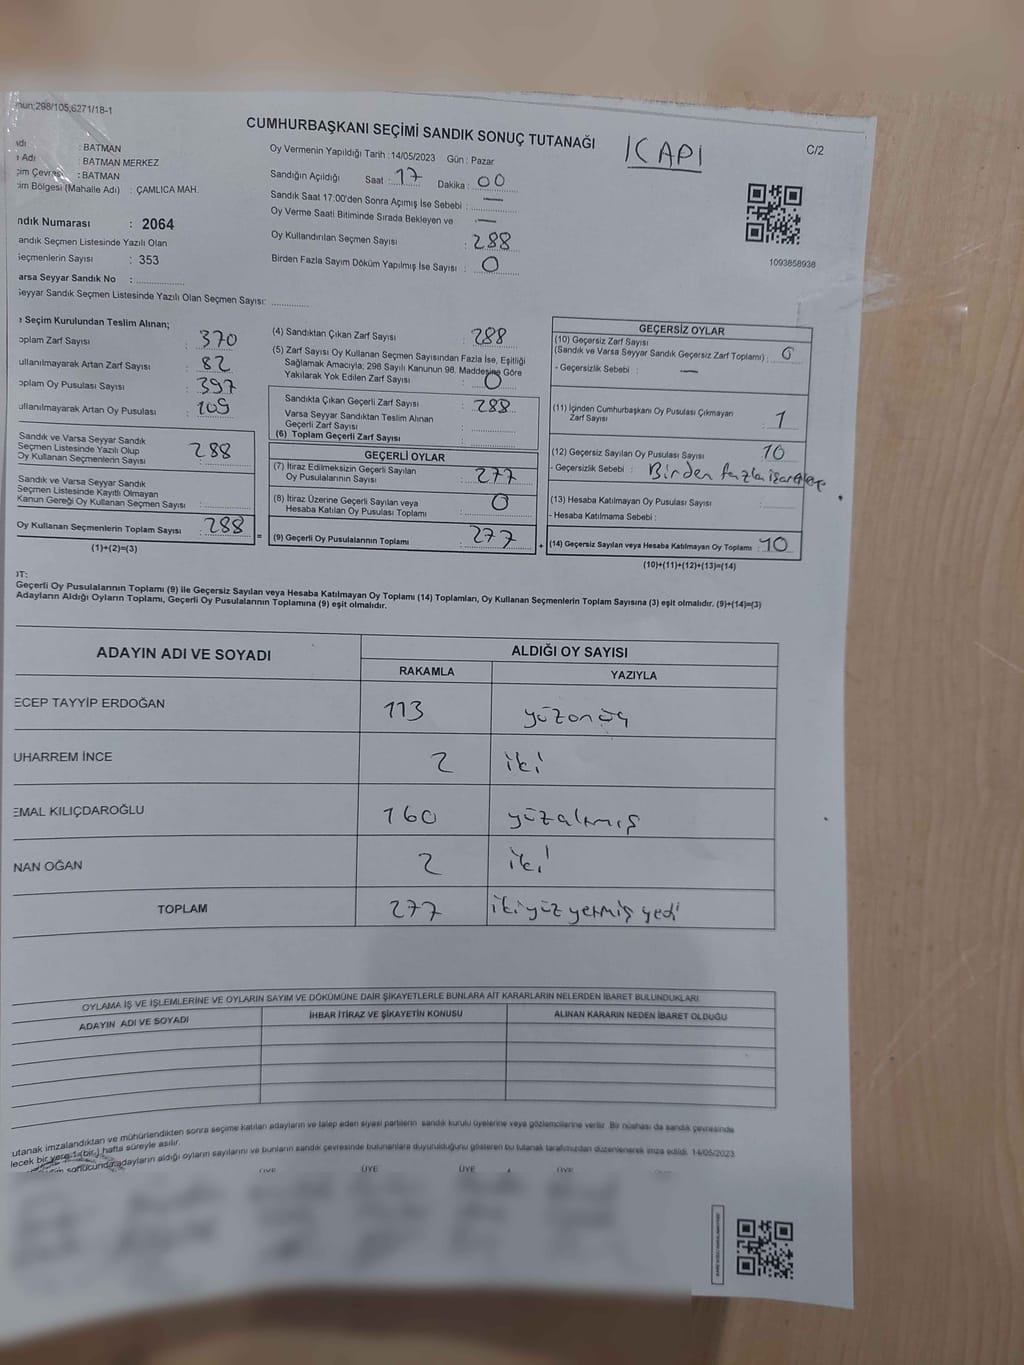 nun;298/105,6271/18-1
CUMHURBAŞKANI SEÇİMİ SANDIK SONUÇ TUTANAĞI
KAPI
C/2
adı : BATMAN
Adı : BATMAN MERKEZ
çim Çevresi : BATMAN
çim Bölgesi (Mahalle Adı) : ÇAMLICA MAH.
ndık Numarası : 2064
andık Seçmen Listesinde Yazılı Olan
eçmenlerin Sayısı : 353
arsa Seyyar Sandık No :
eyyar Sandık Seçmen Listesinde Yazılı Olan Seçmen Sayısı:
Oy Vermenin Yapıldığı Tarih : 14/05/2023 Gün : Pazar
Sandığın Açıldığı Saat : 17 Dakika : 00
Sandık Saat 17:00'den Sonra Açımış İse Sebebi : —
Oy Verme Saati Bitiminde Sırada Bekleyen ve —
Oy Kullandırılan Seçmen Sayısı : 288
Birden Fazla Sayım Döküm Yapılmış İse Sayısı : 0
1093858938
Seçim Kurulundan Teslim Alınan;
oplam Zarf Sayısı : 370
ullanılmayarak Artan Zarf Sayısı : 82
oplam Oy Pusulası Sayısı : 397
ullanılmayarak Artan Oy Pusulası : 109
Sandık ve Varsa Seyyar Sandık
Seçmen Listesinde Yazılı Olup
Oy Kullanan Seçmenlerin Sayısı : 288
Sandık ve Varsa Seyyar Sandık
Seçmen Listesinde Kayıtlı Olmayan
Kanun Gereği Oy Kullanan Seçmen Sayısı :
Oy Kullanan Seçmenlerin Toplam Sayısı : 288
(1)+(2)=(3)
(4) Sandıktan Çıkan Zarf Sayısı : 288
(5) Zarf Sayısı Oy Kullanan Seçmen Sayısından Fazla İse, Eşitliği
Sağlamak Amacıyla; 298 Sayılı Kanunun 98. Maddesine Göre
Yakılarak Yok Edilen Zarf Sayısı : 0
Sandıkta Çıkan Geçerli Zarf Sayısı : 288
Varsa Seyyar Sandıktan Teslim Alınan
Geçerli Zarf Sayısı :
(6) Toplam Geçerli Zarf Sayısı :
GEÇERLİ OYLAR
(7) İtiraz Edilmeksizin Geçerli Sayılan
Oy Pusulalarının Sayısı : 277
(8) İtiraz Üzerine Geçerli Sayılan veya
Hesaba Katılan Oy Pusulası Toplamı : 0
= (9) Geçerli Oy Pusulalarının Toplamı : 277
GEÇERSİZ OYLAR
(10) Geçersiz Zarf Sayısı
(Sandık ve Varsa Seyyar Sandık Geçersiz Zarf Toplamı) : 0
- Geçersizlik Sebebi : —
(11) İçinden Cumhurbaşkanı Oy Pusulası Çıkmayan
Zarf Sayısı : 1
(12) Geçersiz Sayılan Oy Pusulası Sayısı : 10
- Geçersizlik Sebebi : Birden fazla
(13) Hesaba Katılmayan Oy Pusulası Sayısı :
- Hesaba Katılmama Sebebi :
+ (14) Geçersiz Sayılan veya Hesaba Katılmayan Oy Toplamı : 10
(10)+(11)+(12)+(13)=(14)
OT:
Geçerli Oy Pusulalarının Toplamı (9) ile Geçersiz Sayılan veya Hesaba Katılmayan Oy Toplamı (14) Toplamları, Oy Kullanan Seçmenlerin Toplam Sayısına (3) eşit olmalıdır. (9)+(14)=(3)
Adayların Aldığı Oyların Toplamı, Geçerli Oy Pusulalarının Toplamına (9) eşit olmalıdır.
ADAYIN ADI VE SOYADI ALDIĞI OY SAYISI
RAKAMLA YAZIYLA
ECEP TAYYİP ERDOĞAN 113 yüzonüç
UHARREM İNCE 2 iki
EMAL KILIÇDAROĞLU 160 yüzaltmış
NAN OĞAN 2 iki
TOPLAM 277 ikiyüz yetmiş yedi
OYLAMA İŞ VE İŞLEMLERİNE VE OYLARIN SAYIM VE DÖKÜMÜNE DAİR ŞİKAYETLERLE BUNLARA AİT KARARLARIN NELERDEN İBARET BULUNDUKLARI
ADAYIN ADI VE SOYADI İHBAR İTİRAZ VE ŞİKAYETİN KONUSU ALINAN KARARIN NEDEN İBARET OLDUĞU
utanak imzalandıktan ve mühürlendikten sonra seçime katılan adayların ve talep eden siyasi partilerin sandık kurulu üyelerine veya gözlemcilerine verilir. Bir nüshası da sandık çevresinde
lecek bir yere 1 (bir) hafta süreyle asılır.
sonucunda adayların aldığı oyların sayılarını ve bunların sandık çevresinde bulunanlara duyurulduğunu gösteren bu tutanak tarafımızdan düzenlenerek imza edildi. 14/05/2023
ÜYE ÜYE ÜYE ÜYE